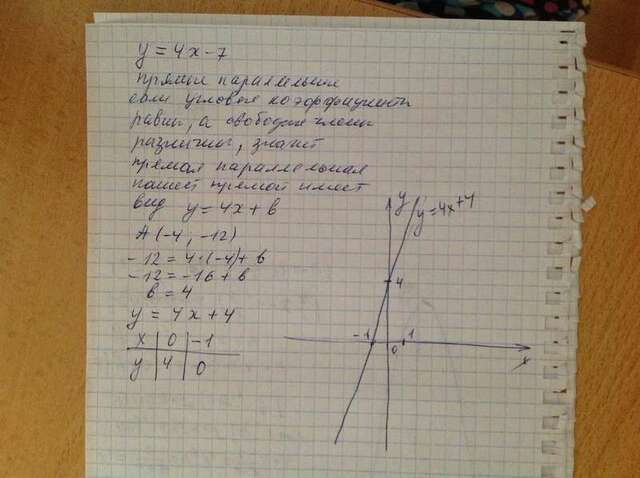 y = 4x - 7
прямые параллельны
если угловые коэффициенты
равны, а свободные члены
различны, значит
прямая параллельная
нашей прямой имеет
вид y = 4x + b
A(-4; -12)
-12 = 4·(-4) + b
-12 = -16 + b
b = 4
y = 4x + 4
x | 0 | -1
y | 4 | 0
y
y = 4x + 4
4
-1
0
1
x